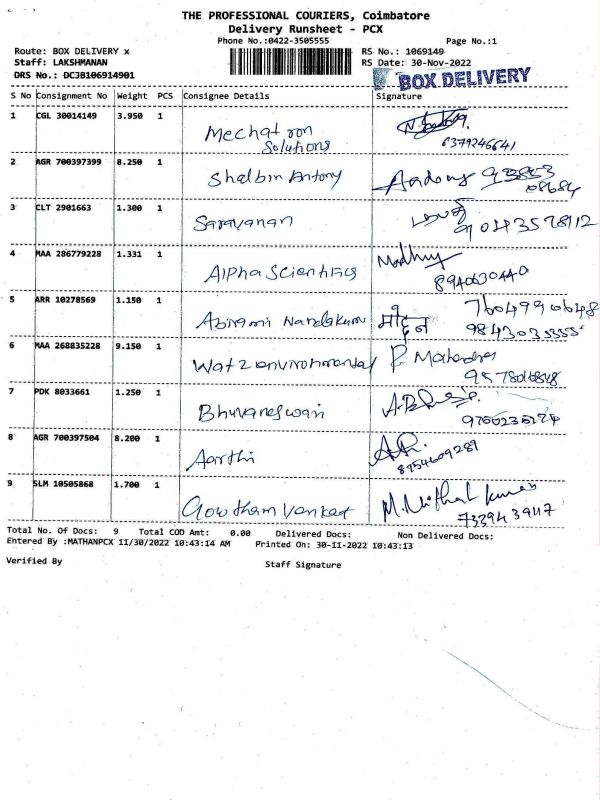 THE PROFESSIONAL COURIERS, Coimbatore
Delivery Runsheet - PCX
Phone No.:0422-3505555
Page No.:1
Route: BOX DELIVERY x
RS No.: 1069149
Staff: LAKSHMANAN
RS Date: 30-Nov-2022
DRS No.: DCJB106914901
BOX DELIVERY
S No Consignment No Weight PCS Consignee Details Signature
1 CGL 30014149 3.950 1 Mechatron
Solutions
6379246641
2 AGR 700397399 8.250 1 Shalbin Antony
3 CLT 2901663 1.300 1 Saravanan
4 MAA 286779228 1.331 1 Alpha Scientifics Madhu
8940630440
5 ARR 10278569 1.150 1 Abirami Nandakumar 7604990648
6 MAA 268835228 9.150 1 Watzenvironmental
7 PDK 8033661 1.250 1 Bhuvaneswari
8 AGR 700397504 8.200 1 Aarthi
8754609289
9 SLM 10505868 1.700 1 Gowtham Venkat
Total No. Of Docs: 9 Total COD Amt: 0.00 Delivered Docs: Non Delivered Docs:
Entered By :MATHANPCX 11/30/2022 10:43:14 AM Printed On: 30-11-2022 10:43:13
Verified By Staff Signature